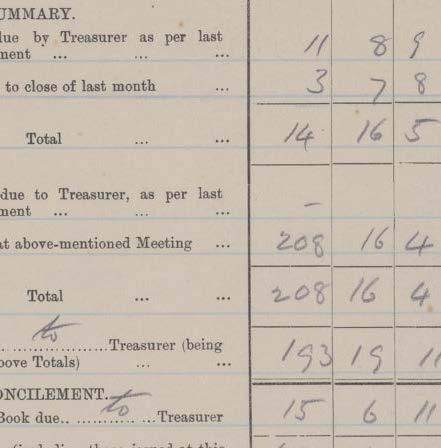 UMMARY.
due by Treasurer as per last
ment ... ... ... 11 8 9
to close of last month ... 3 7 8
Total ... ... 14 16 5
due to Treasurer, as per last
ment ... ... ... –
at above-mentioned Meeting ... 208 16 4
Total ... ... 208 16 4
to
Treasurer (being
bove Totals) ... ... 193 19 11
ONCILEMENT.
Book due.. to ...Treasurer 15 6 11